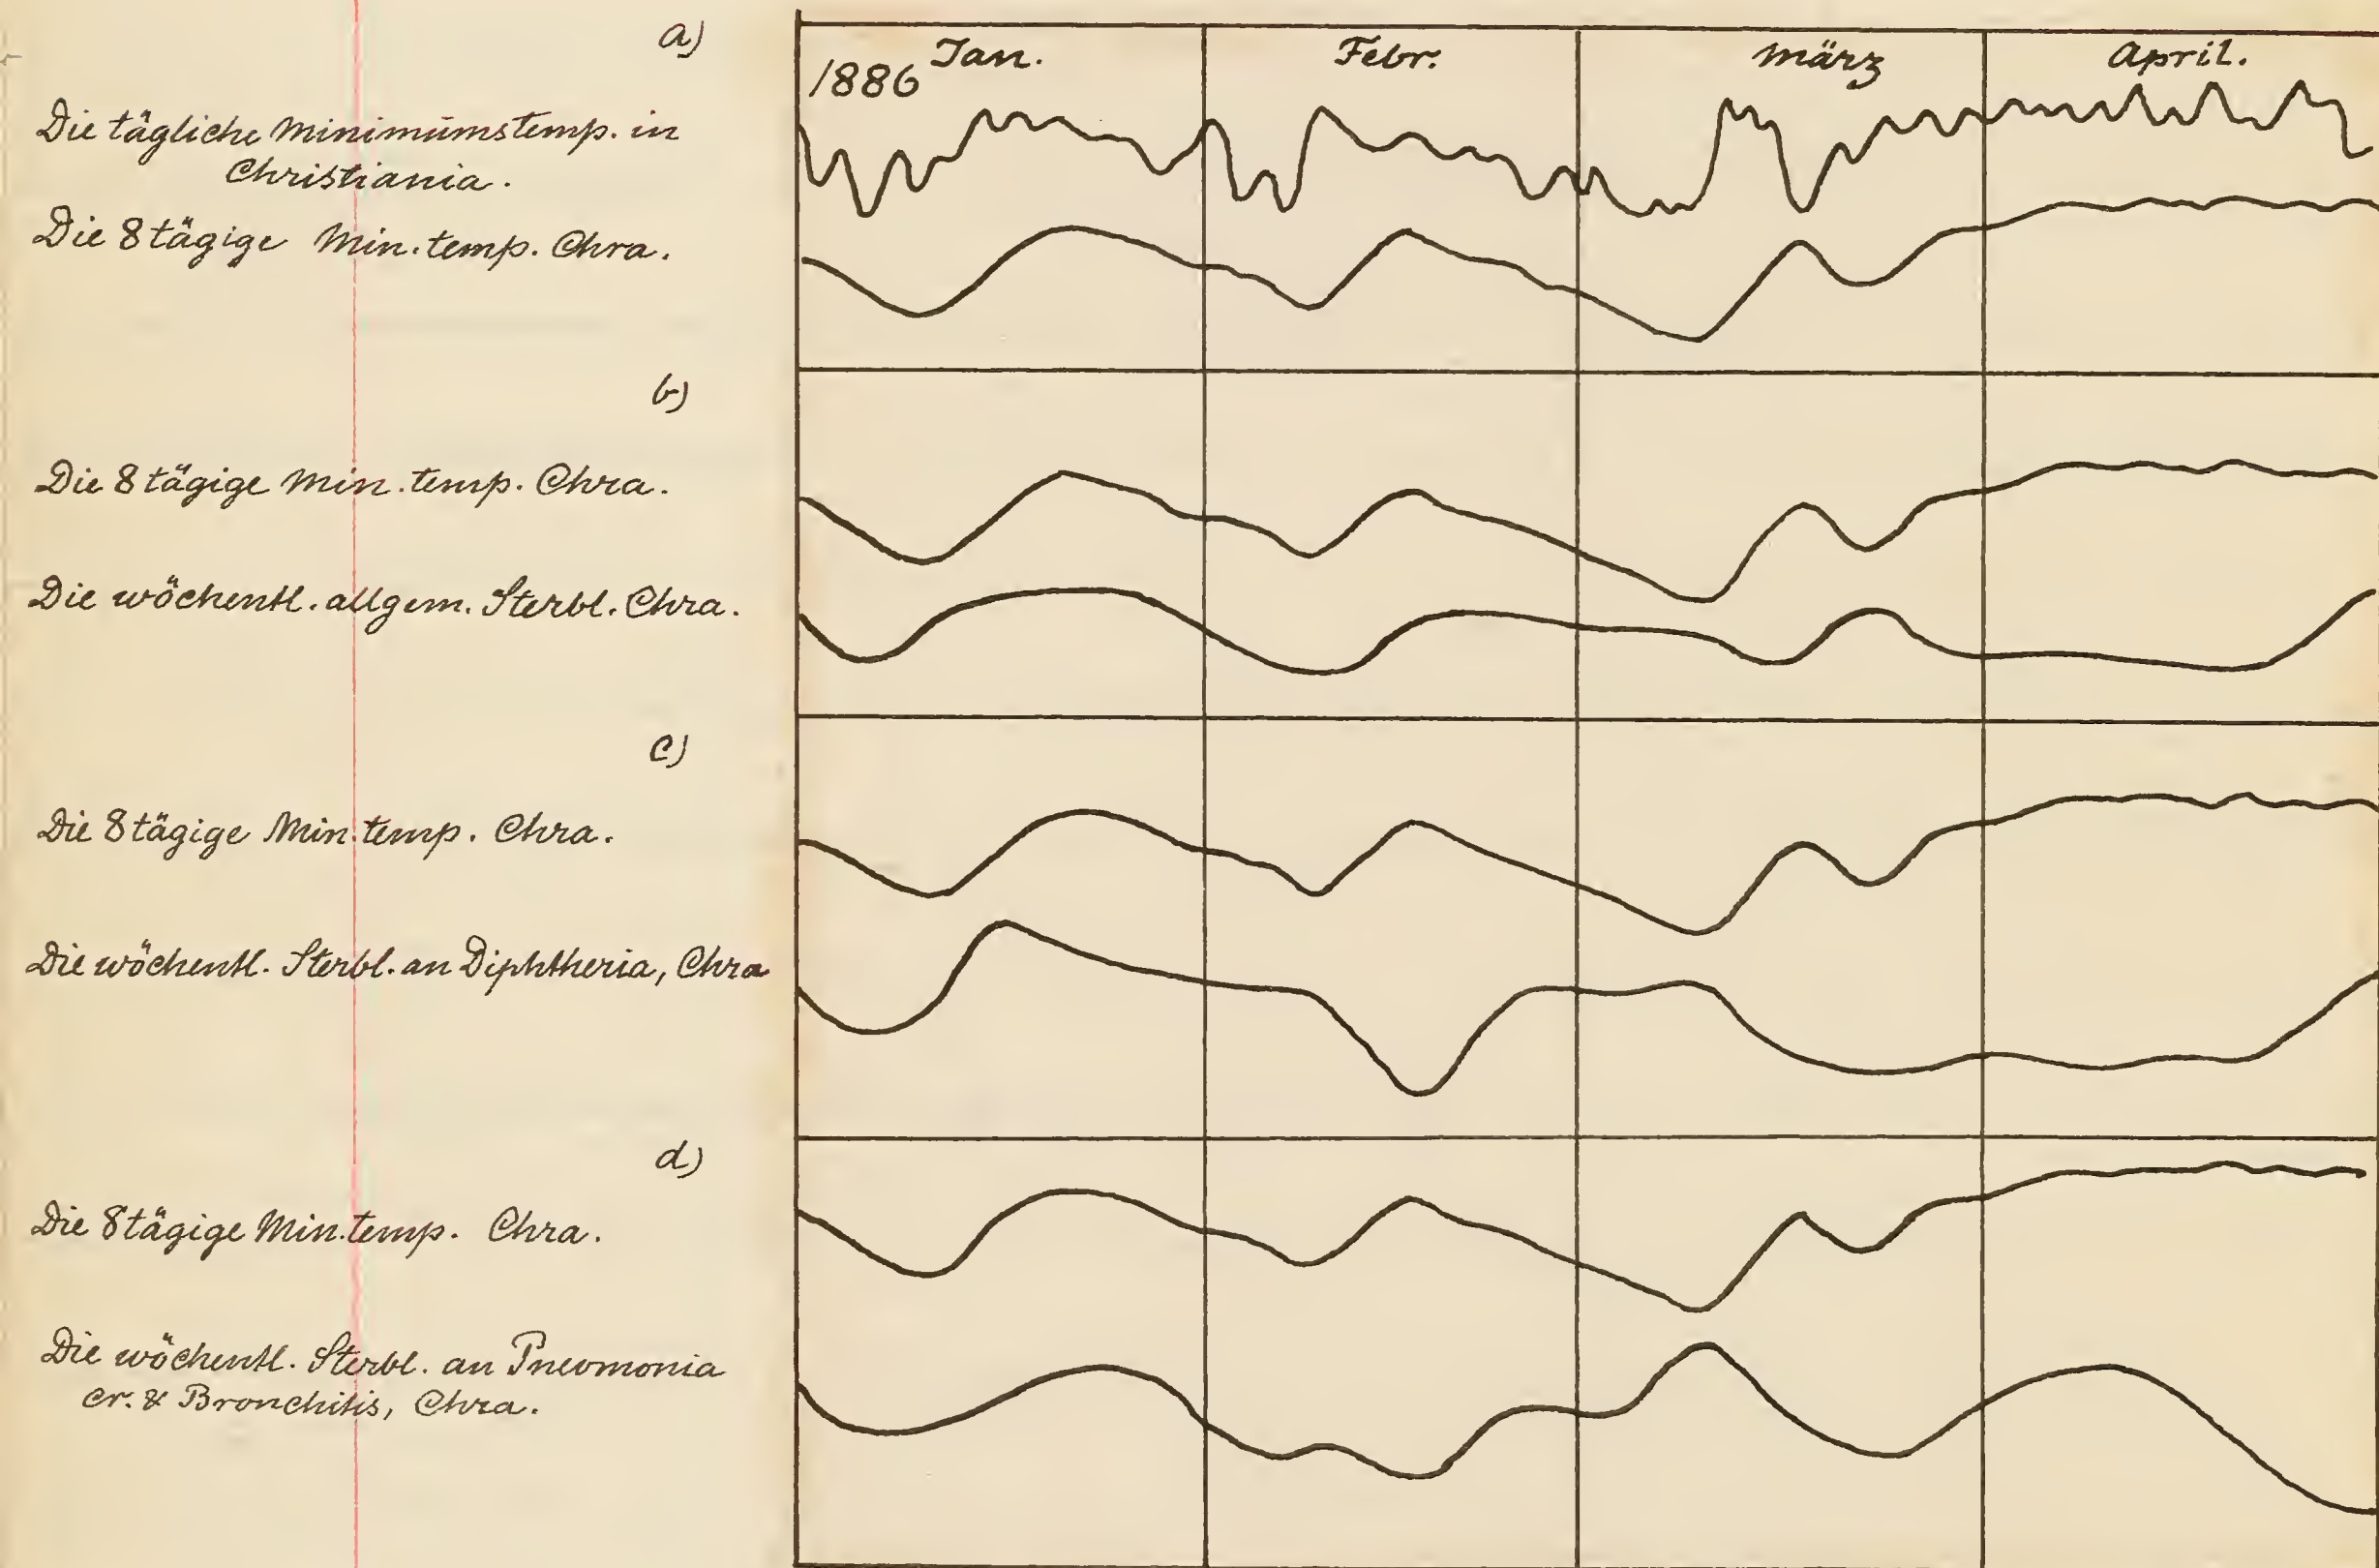 a)
1886 Jan. Febr. März April.
Die tägliche Minimumstemp. in
Christiania.
Die 8tägige Min. temp. Chra.
b)
Die 8tägige Min. temp. Chra.
Die wöchentl. allgem. Sterbl. Chra.
c)
Die 8tägige Min. temp. Chra.
Die wöchentl. Sterbl. an Diphtheria, Chra
d)
Die 8tägige Min. temp. Chra.
Die wöchentl. Sterbl. an Pneumonia
cr. & Bronchitis, Chra.